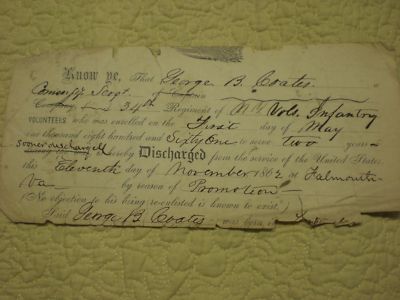 Know ye, That George B. Coates.
Sergt. of
34th Regiment of N.Y. Vols. Infantry
VOLUNTEERS who was enrolled on the First day of May
one thousand eight hundred and Sixty One to serve two years
hereby Discharged from the service of the United States
this Eleventh day of November 1862 at Falmouth
Va by reason of Promotion
(No objection to his being re-enlisted is known to exist.)
Said George B. Coates was born in